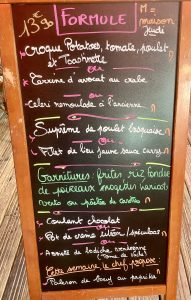 13€90 FORMULE M = maison
Jeudi
Croque Potatoes, tomate, poulet
et Toastinette
ou
Terrine d'avocat au crabe
ou
Céleri remoulade à l'ancienne
Suprême de poulet basquaise
ou
Filet de lieu jaune sauce curry
Garnitures: frites riz fondue
de poireaux nouilles haricots
verts ou purée de carottes
Coulant chocolat
ou
Pot de crème citron/spéculoos
ou
Assiette de
Cette semaine, le chef propose
au paprika